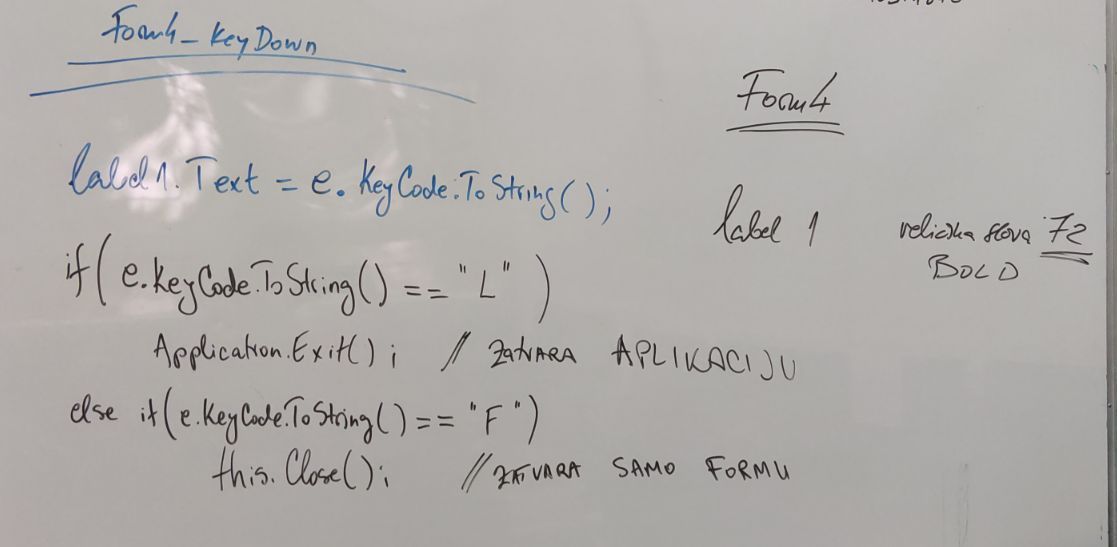 Form4_KeyDown
label1.Text = e.KeyCode.ToString();
if(e.KeyCode.ToString() == "L")
Application.Exit(); // ZATVARA APLIKACIJU
else if(e.KeyCode.ToString() == "F")
this.Close(); // ZATVARA SAMO FORMU
Form4
label 1 velicina slova 72
BOLD